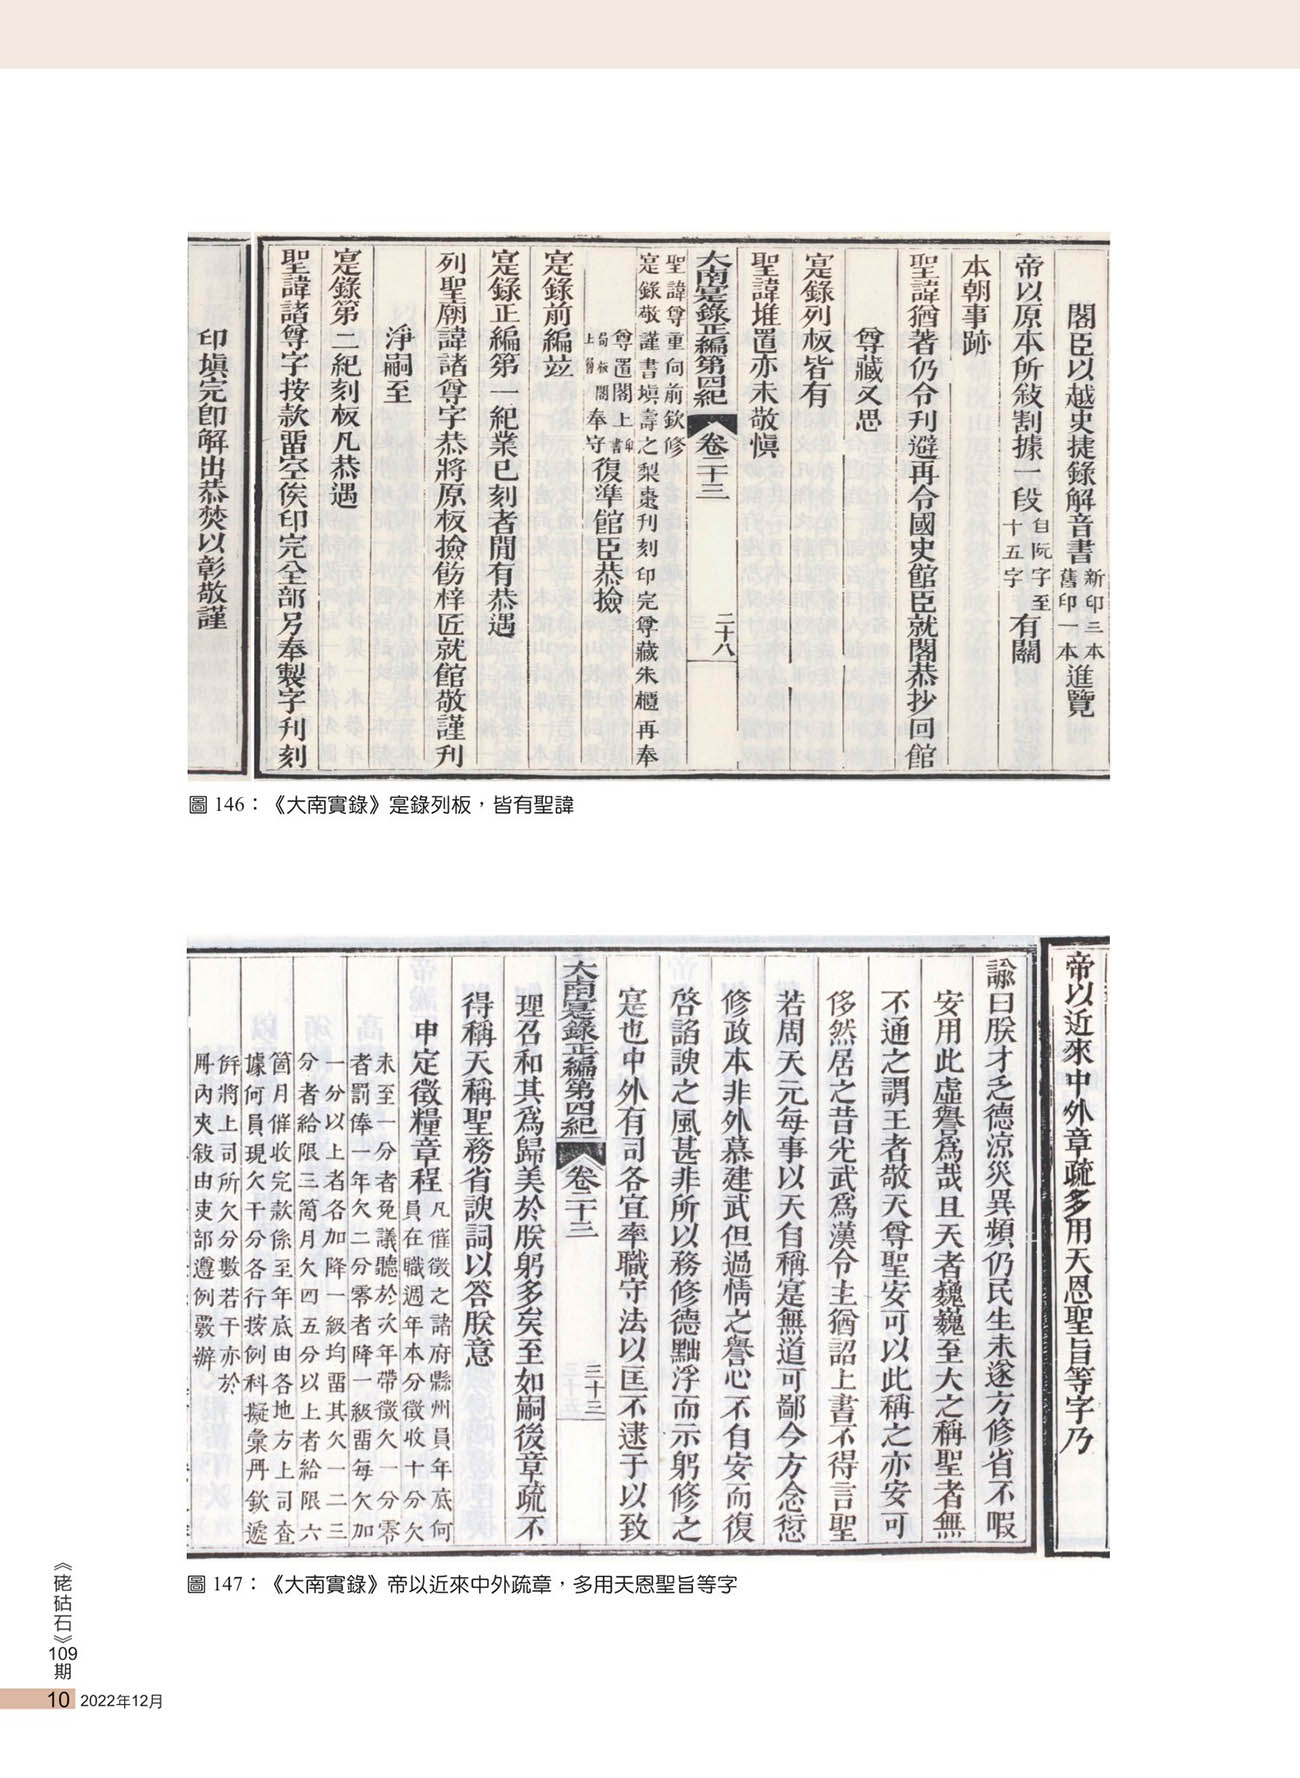 閣臣以越史捷錄解音書新印三本舊印一本進覽
帝以原本所敍割據一段自阮字至十五字有關
本朝事跡
聖諱猶著仍令刊避再令國史館臣就閣恭抄回館
尊藏又思
寔錄列板皆有
聖諱堆置亦未敬慎
大南寔錄正編第四紀 卷二十三 二十八
聖諱尊重向前欽修
寔錄敬謹書塡壽之梨棗刊刻印完尊藏朱櫃再奉
尊置閣上奉守復準館臣恭撿
寔錄前編並
寔錄正編第一紀業已刻者閒有恭遇
列聖廟諱諸尊字恭將原板撿飭梓匠就館敬謹刊
淨嗣至
寔錄第二紀刻板凡恭遇
聖諱諸尊字按款畱空俟印完全部另奉製字刊刻
印塡完卽解出恭焚以彰敬謹
圖 146：《大南實錄》寔錄列板，皆有聖諱
帝以近來中外章疏多用天恩聖旨等字乃
諭曰朕才乏德涼災異頻仍民生未遂方修省不暇
安用此虛譽爲哉且天者巍巍至大之稱聖者無
不通之謂王者敬天尊聖安可以此稱之亦安可
侈然居之昔光武爲漢令主猶詔上書不得言聖
若周天元每事以天自稱寔無道可鄙今方念愆
修政本非外慕建武但過情之譽心不自安而復
啓諂諛之風甚非所以務修德黜浮而示躬修之
寔也中外有司各宜率職守法以匡不逮于以致
大南寔錄正編第四紀 卷二十三 三十三
理召和其爲歸美於朕躬多矣至如嗣後章疏不
得稱天稱聖務省諛詞以答朕意
申定徵糧章程凡催徵之諸府縣州員年底何
員在職週年本分徵收十分欠
未至一分者免議聽於次年帶徵欠一分零
者罰俸一年欠二分零者降一級畱每欠加
一分以上者各加降一級均畱其欠一二三
分者給限三箇月欠四五分以上者給限六
箇月催收完款係至年底由各地方上司查
據何員現欠干分各行按例科擬彙冊欽遞
併將上司所欠分數若干亦於
冊內夾敍由吏部遵例覈辦
圖 147：《大南實錄》帝以近來中外疏章，多用天恩聖旨等字
《硓𥑮石》109期
10 2022年12月